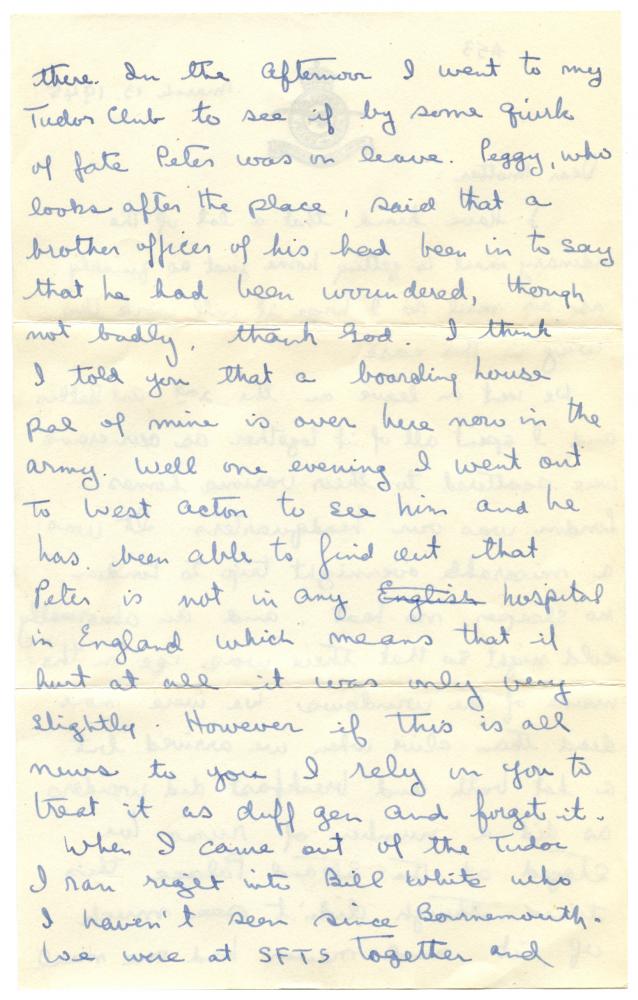 there. In the afternoon I went to my
Tudor Club to see if by some quirk
of fate Peter was on leave. Peggy, who
looks after the place, said that a
brother officer of his had been in to say
that he had been woundered, though
not badly, thank God. I think
I told you that a boarding house
pal of mine is over here now in the
army. Well one evening I went out
to West Acton to see him and he
has been able to find out that
Peter is not in any English hospital
in England which means that if
hurt at all it was only very
slightly. However if this is all
news to you I rely on you to
treat it as duff gen and forget it.
When I came out of the Tudor
I ran right into Bill White who
I haven't seen since Bournemouth.
We were at SFTS together and